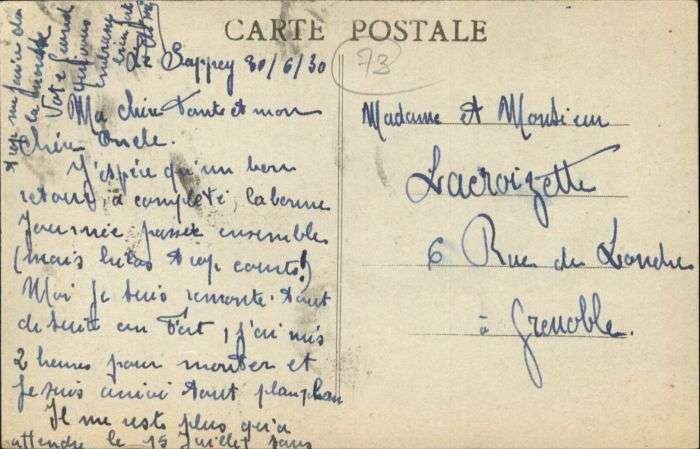 CARTE POSTALE
Le Sappey 30/6/30
73
Ma chère Tante et mon
Cher Oncle.
J'espère qu'un bon
retour, a complété, la bonne
journée passée ensembles
(mais hélas trop courts!)
Moi je suis remonté tout
de suite au Fort, j'ai mis
2 heures pour monter et
je suis arrivé tout plan plan
Il me reste plus qu'a
attendre le 15 Juillet sans
trop m'en faire
Votre grand
qui vous
embrasse
bien fort
Madame et Monsieur
Lacroizette
6 Rue de Londres
à Grenoble.